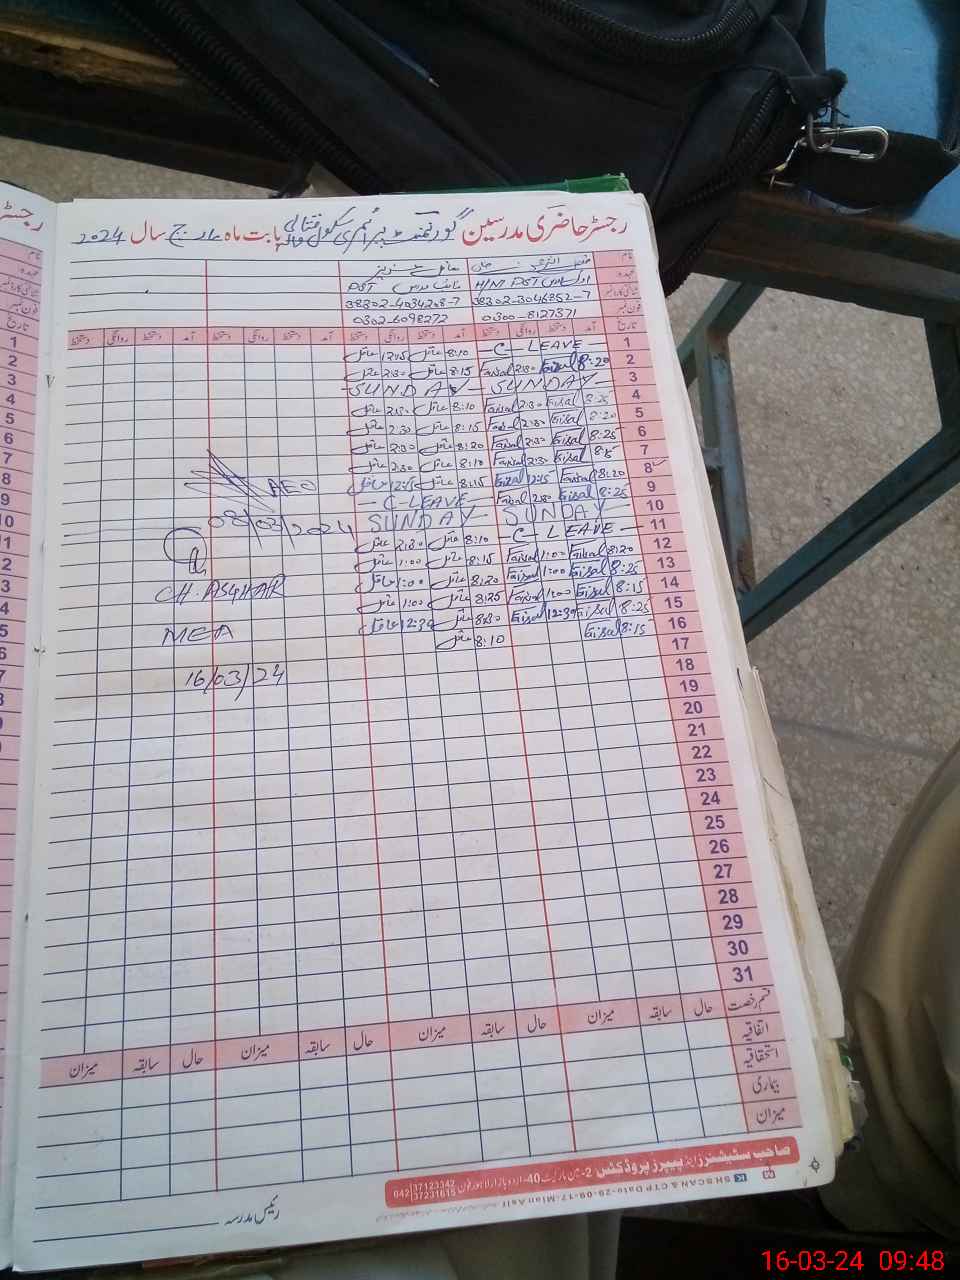 رجسٹر حاضری مدرسین گورنمنٹ پرائمری سکول بابت ماہ مارچ سال 2024
نام
عہدہ H/M PST PST
شناختی کارڈ نمبر 38302-3046852-7 38302-4034208-7
فون نمبر 0300-8127371 0302-6098272
تاریخ آمد دستخط روانگی دستخط آمد دستخط روانگی دستخط آمد دستخط روانگی دستخط آمد دستخط روانگی دستخط
1 C-LEAVE 8:10 12:15
2 8:20 Faisal 2:30 Faisal 8:15 2:30
3 SUNDAY SUNDAY
4 8:25 Faisal 2:30 Faisal 8:10 2:30
5 8:20 Faisal 2:30 Faisal 8:15 2:30
6 8:25 Faisal 2:30 Faisal 8:20 2:30
7 Faisal 2:30 Faisal 8:10 2:30
8 8:20 Faisal 12:15 Faisal 8:15 12:15
9 8:25 Faisal 2:30 Faisal C-LEAVE
10 SUNDAY SUNDAY
11 C-LEAVE 8:10 2:30
12 8:20 Faisal 1:00 Faisal 8:15 1:00
13 8:25 Faisal 1:00 Faisal 8:20 1:00
14 8:15 Faisal 1:00 Faisal 8:25 1:00
15 8:25 Faisal 12:30 Faisal 8:30 12:30
16 8:15 Faisal 8:10
17
18
19
20
21
22
23
24
25
26
27
28
29
30
31
AEO
08/03/2024
CH. ASGHAR
MEA
16/03/24
قسم رخصت حال سابقہ میزان حال سابقہ میزان حال سابقہ میزان حال سابقہ میزان
اتفاقیہ
استحقاقیہ
بیماری
میزان
صاحب سٹیشنرز اینڈ پیپرز پروڈکٹس 2-مین مارکیٹ 40-اردو بازار لاہور فون 042 37123342 37231615
SH SCAN & CTP Date-29-09-17-Mian Asif
رئیس مدرسہ
16-03-24 09:48